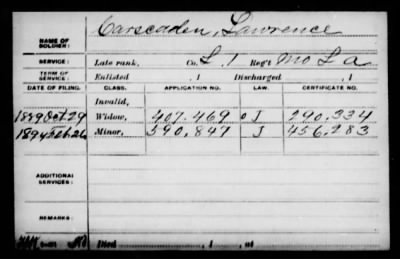 NAME OF SOLDIER: Carscaden, Lawrence
SERVICE: Late rank, Co. L. 1 Reg't Mo L a
TERM OF SERVICE: Enlisted , 1 Discharged , 1
DATE OF FILING. CLASS. APPLICATION NO. LAW. CERTIFICATE NO.
Invalid,
1889 Oct. 29 Widow, 407.469 J 290.334
1894 Feb. 26 Minor, 590,847 J 456,283
ADDITIONAL SERVICES:
REMARKS:
Died , 1 , at